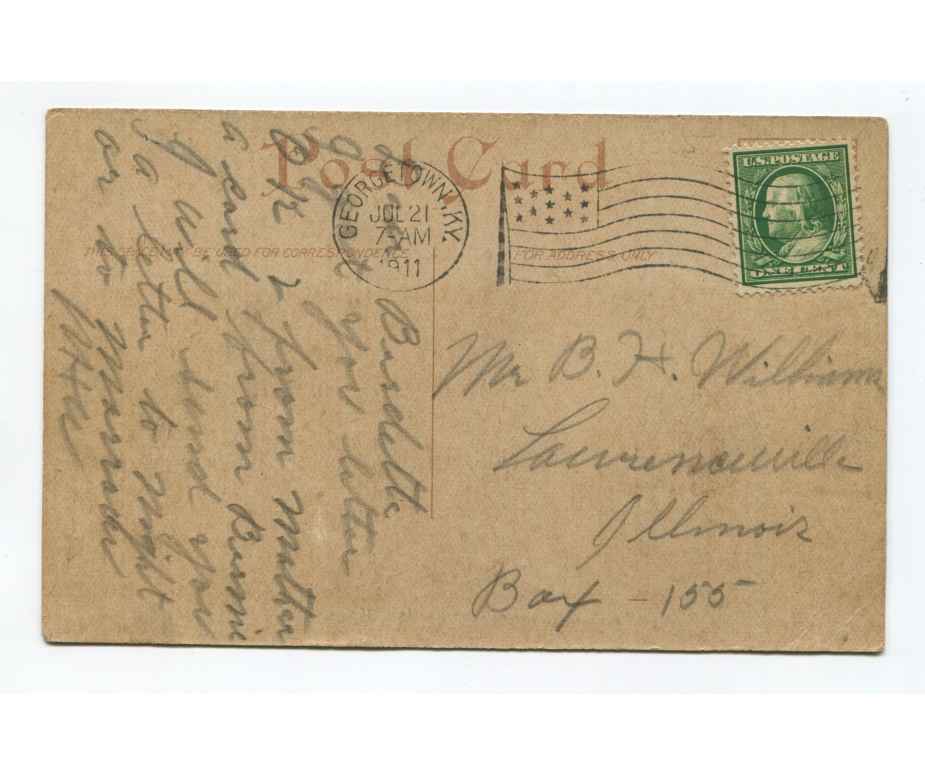 Post Card
U.S. POSTAGE
ONE CENT
GEORGETOWN, KY.
JUL 21
7-AM
1911
THIS SPACE MAY BE USED FOR CORRESPONDENCE
FOR ADDRESS ONLY
Burdette
your letter
O K & from Mutter
a card from
I will send you
a letter to night
or to morrow
Mr B. H. Williams
Lawrenceville
Illinois
Box - 155